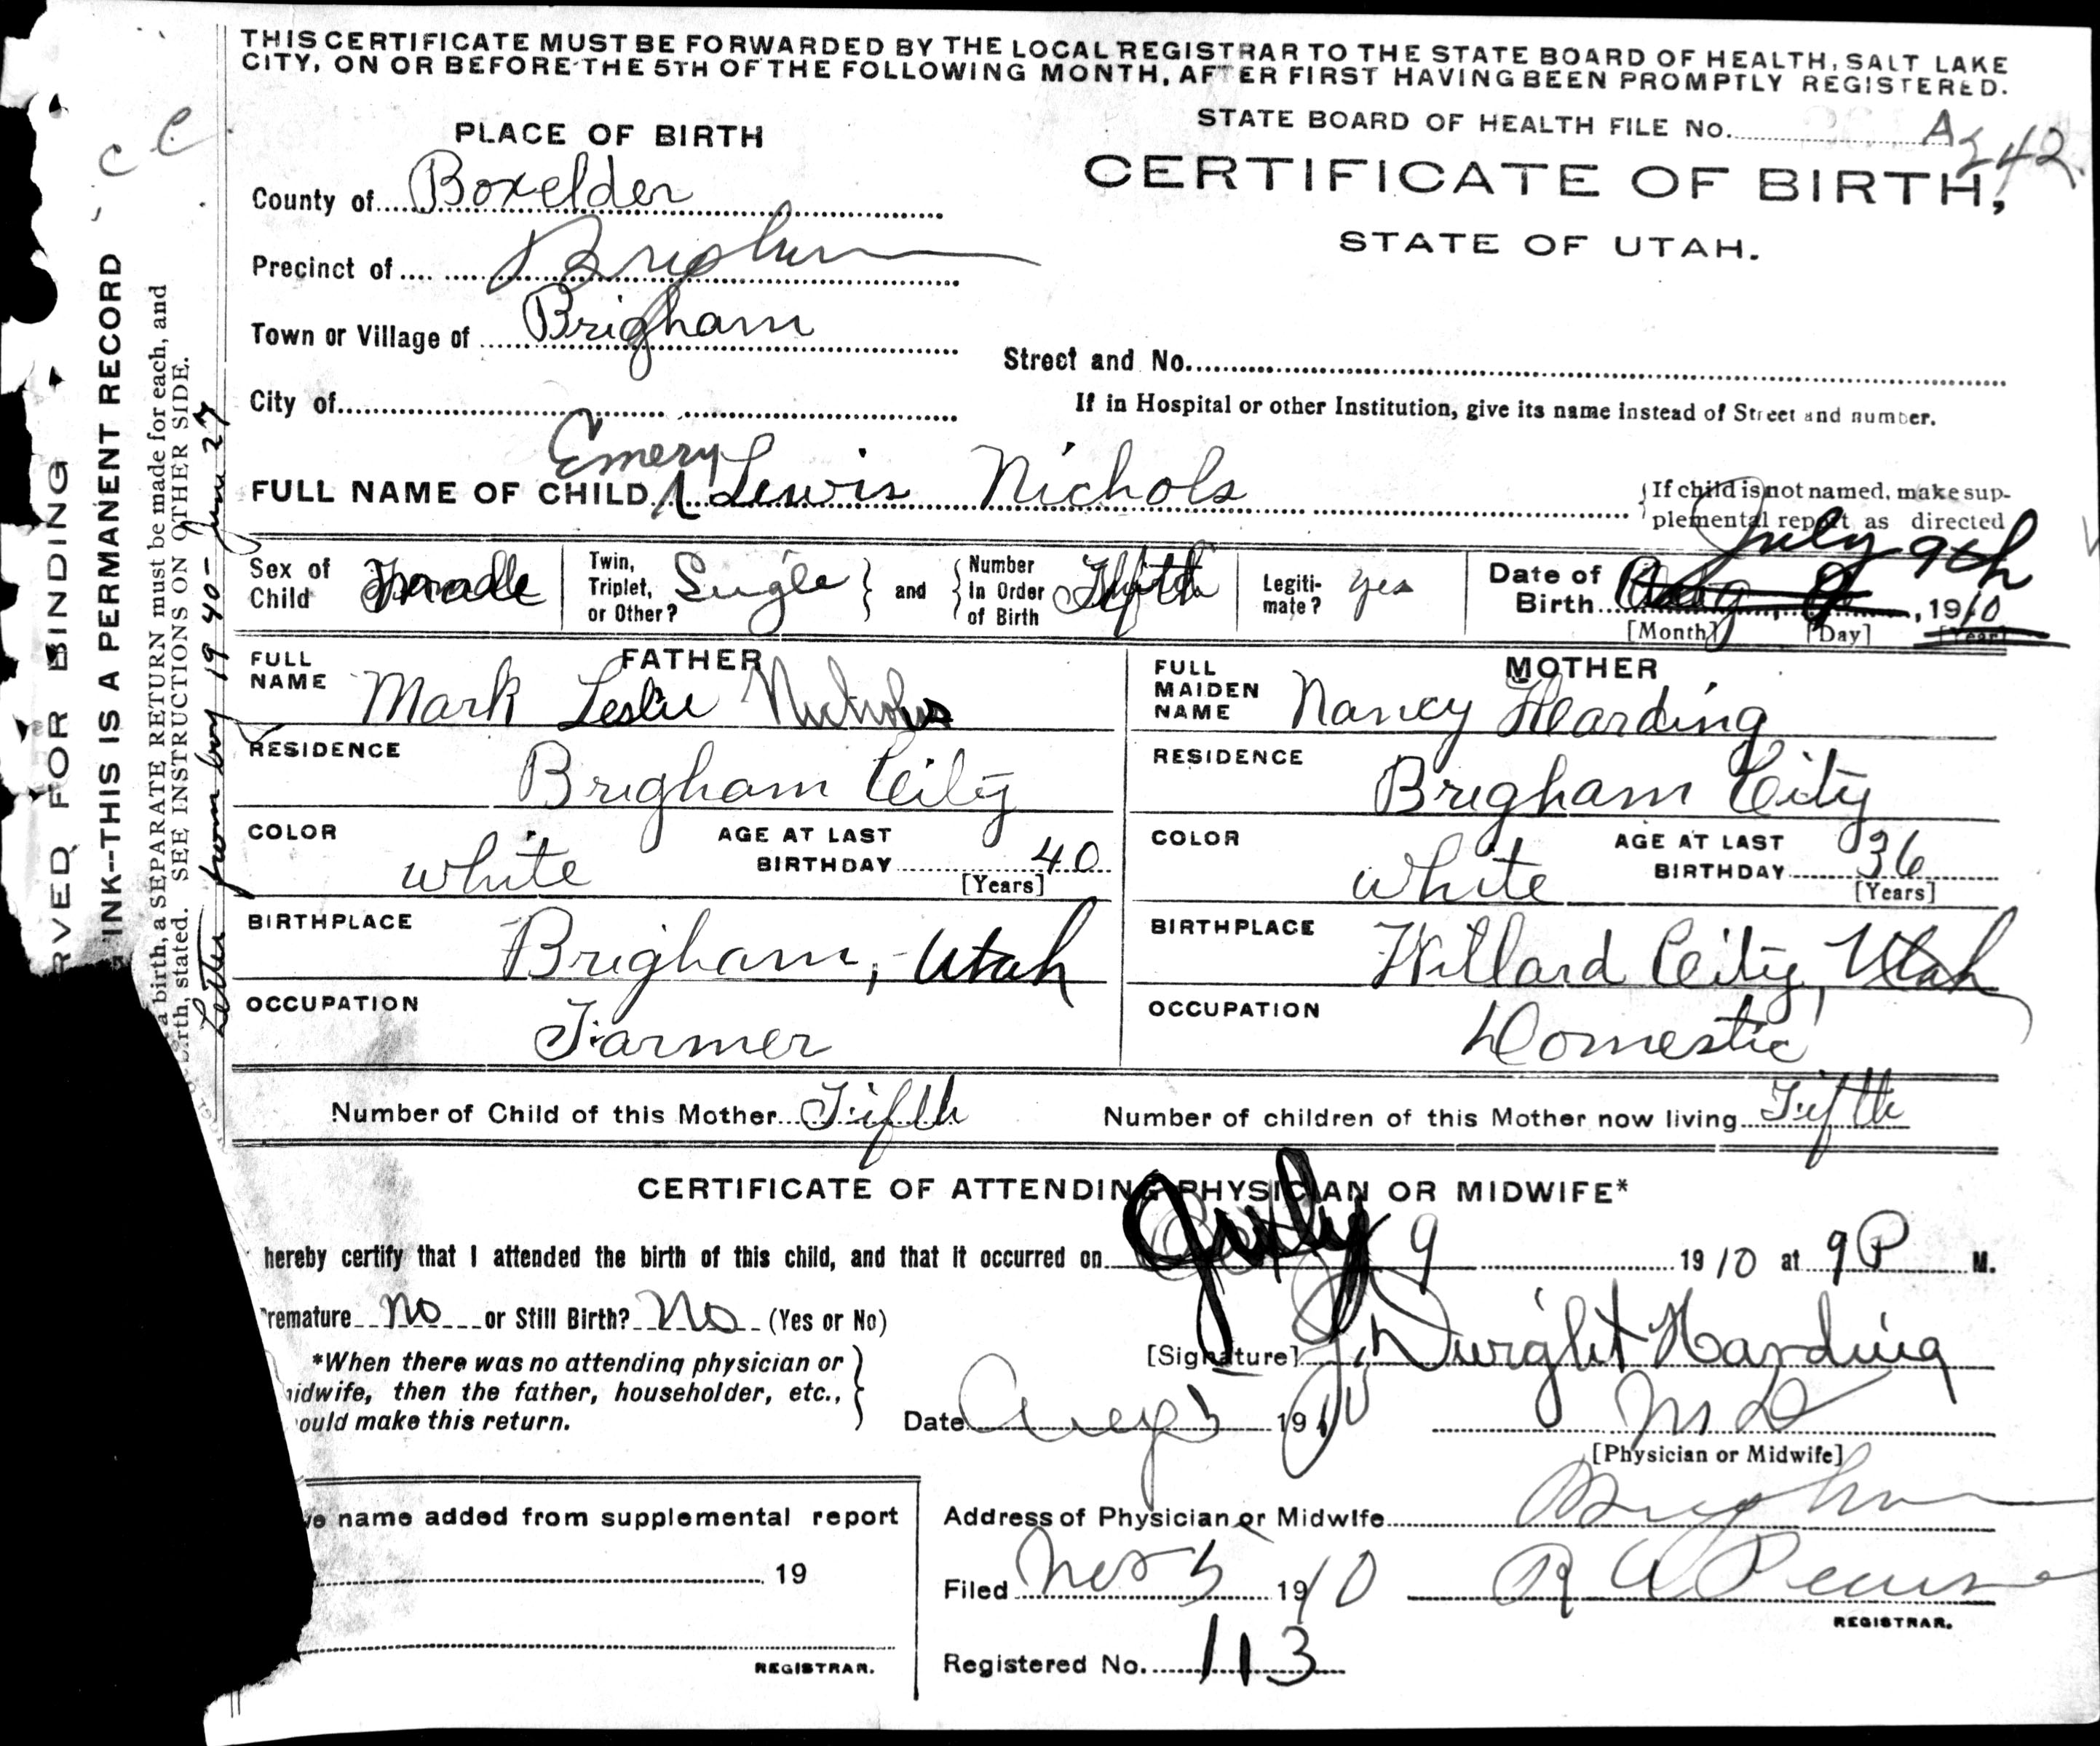 THIS CERTIFICATE MUST BE FORWARDED BY THE LOCAL REGISTRAR TO THE STATE BOARD OF HEALTH, SALT LAKE
CITY, ON OR BEFORE THE 5TH OF THE FOLLOWING MONTH, AFTER FIRST HAVING BEEN PROMPTLY REGISTERED.
STATE BOARD OF HEALTH FILE No. A 242
PLACE OF BIRTH
CERTIFICATE OF BIRTH,
STATE OF UTAH.
County of Boxelder
Precinct of Brigham
Town or Village of Brigham
Street and No.
City of
If in Hospital or other Institution, give its name instead of Street and number.
Emery
FULL NAME OF CHILD Lewis Nichols
If child is not named, make sup-
plemental report as directed
July 9th
Sex of Child
Twin, Triplet, or Other? Single and
Number in Order of Birth
Legiti-mate? yes
Date of Birth Aug 9, 1910
[Month] [Day] [Year]
FATHER
FULL NAME Mark Leslie Nichols
RESIDENCE Brigham City
COLOR white
AGE AT LAST BIRTHDAY 40
[Years]
BIRTHPLACE Brigham, Utah
OCCUPATION Farmer
MOTHER
FULL MAIDEN NAME Nancy Harding
RESIDENCE Brigham City
COLOR white
AGE AT LAST BIRTHDAY 36
[Years]
BIRTHPLACE Willard City, Utah
OCCUPATION Domestic
Number of Child of this Mother Fifth
Number of children of this Mother now living Fifth
CERTIFICATE OF ATTENDING PHYSICIAN OR MIDWIFE*
hereby certify that I attended the birth of this child, and that it occurred on July 9 1910 at 9 P M.
remature no or Still Birth? No (Yes or No)
[Signature] J. Dwight Harding
*When there was no attending physician or
idwife, then the father, householder, etc.,
ould make this return.
Date Aug 5 1910
M D
[Physician or Midwife]
e name added from supplemental report
19
REGISTRAR.
Address of Physician or Midwife Brigham
Filed Nov 5 1910 R A Pearse
REGISTRAR.
Registered No. 113
RVED FOR BINDING
INK--THIS IS A PERMANENT RECORD
a birth, a SEPARATE RETURN must be made for each, and
birth, stated. SEE INSTRUCTIONS ON OTHER SIDE.
Letter from boy 1940 - June 27
c c